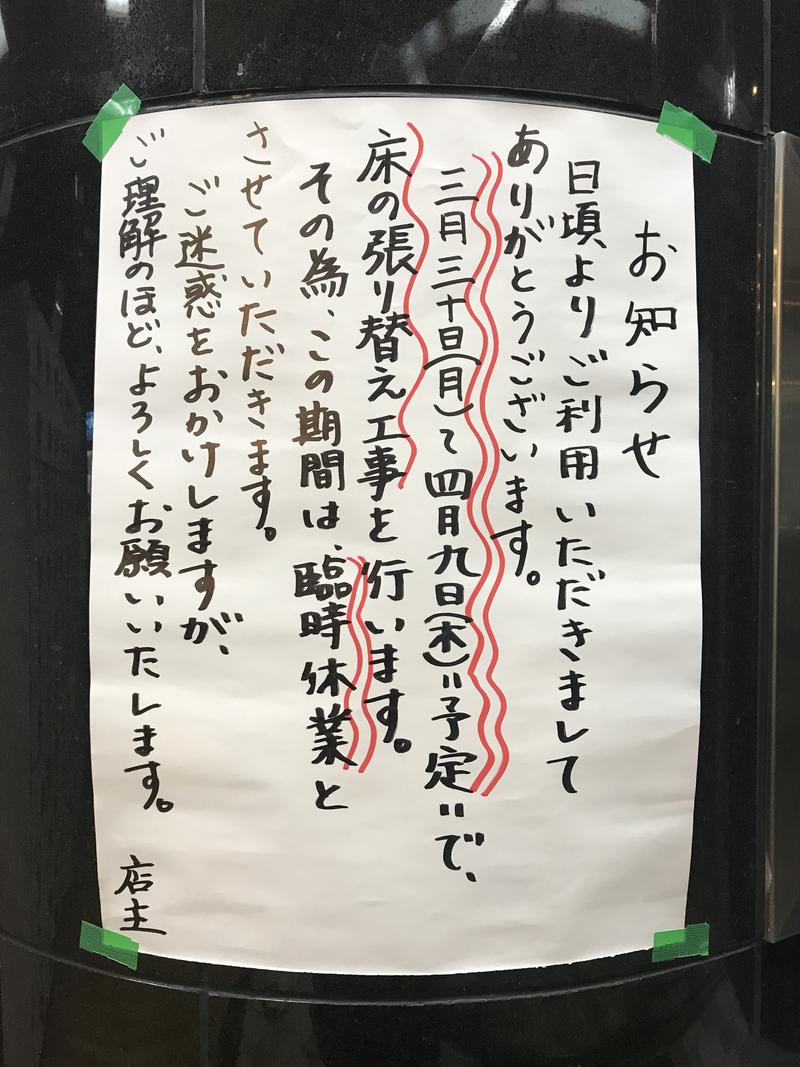 お知らせ
日頃よりご利用いただきまして
ありがとうございます。
三月三十日(月)〜四月九日(木)"予定"で、
床の張り替え工事を行います。
その為、この期間は、臨時休業と
させていただきます。
ご迷惑をおかけしますが、
ご理解のほど、よろしくお願いいたします。
店主